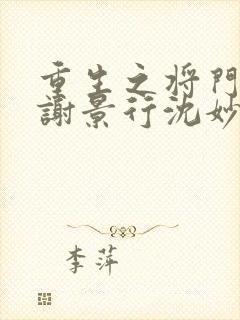 重生之将门
謝景行沈妙
李萍